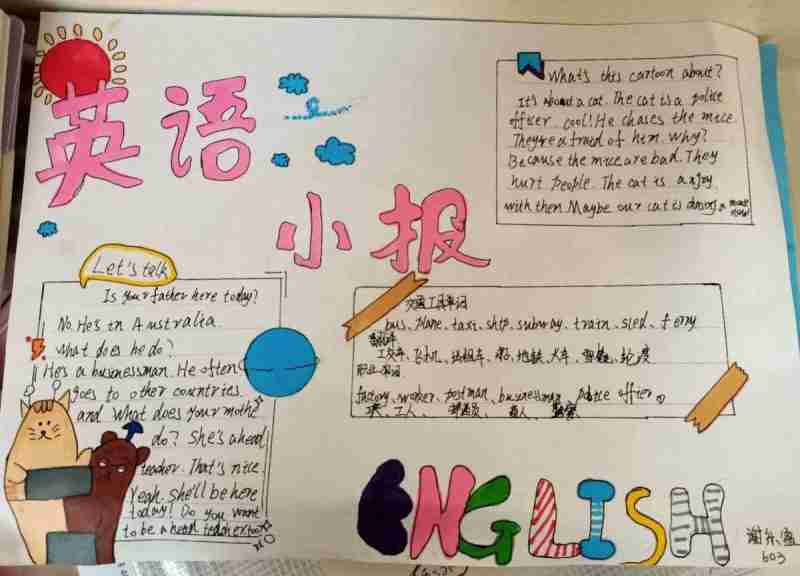 英语
小报
What's this cartoon about?
It's about a cat. The cat is a police
officer. cool! He chases the mice.
They're afraid of him. Why?
Because the mice are bad. They
hurt people. The cat is angry
with them Maybe our cat is chasing a mouse
now!
Let's talk
Is your father here today?
No. He's in Australia.
What does he do?
He's a businessman. He often
goes to other countries.
and What does your mothe
do? She's a head
teacher. That's nice
Yeah. She'll be here
today! Do you want
to be a head teacher, too?
交通工具单词
bus、plane、taxi、ship、subway、train、sled、ferry
飞机、出租车、船、地铁、火车、雪橇、轮渡
职业单词
factory、worker、postman、businessman、police officer。
工人、邮递员、商人、警察
ENGLISH
603